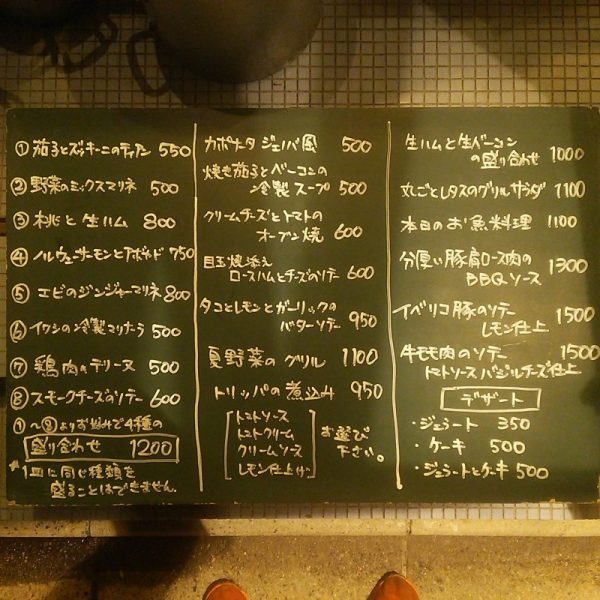 ①茄子とズッキーニのグラタン 550
②野菜のミックスマリネ 500
③桃と生ハム 800
④ノルウェーサーモンとアボカド 750
⑤エビのジンジャーマリネ 800
⑥イワシの冷製マリナーラ 500
⑦鶏肉のテリーヌ 500
⑧スモークチーズのソテー 600
①〜⑧よりお好みで4種の
盛り合わせ 1200
*1皿に同じ種類を
盛ることはできません。
カポナータ ジェノバ風 500
焼き茄子とベーコンの
冷製スープ 500
クリームチーズとトマトの
オーブン焼 600
目玉焼添え
ロースハムとチーズのソテー 600
タコとレモンとガーリックの
バターソテー 950
夏野菜のグリル 1100
トリッパの煮込み 950
トマトソース
トマトクリーム
クリームソース
レモン仕上げ
お選び
下さい。
生ハムと生ベーコン
の盛り合わせ 1000
丸ごとレタスのグリルサラダ 1100
本日のお魚料理 1100
分厚い豚肩ロース肉の
BBQソース 1300
イベリコ豚のソテー
レモン仕上 1500
牛モモ肉のソテー 1500
トマトソースバジルチーズ仕上
デザート
・ジェラート 350
・ケーキ 500
・ジェラートとケーキ 500